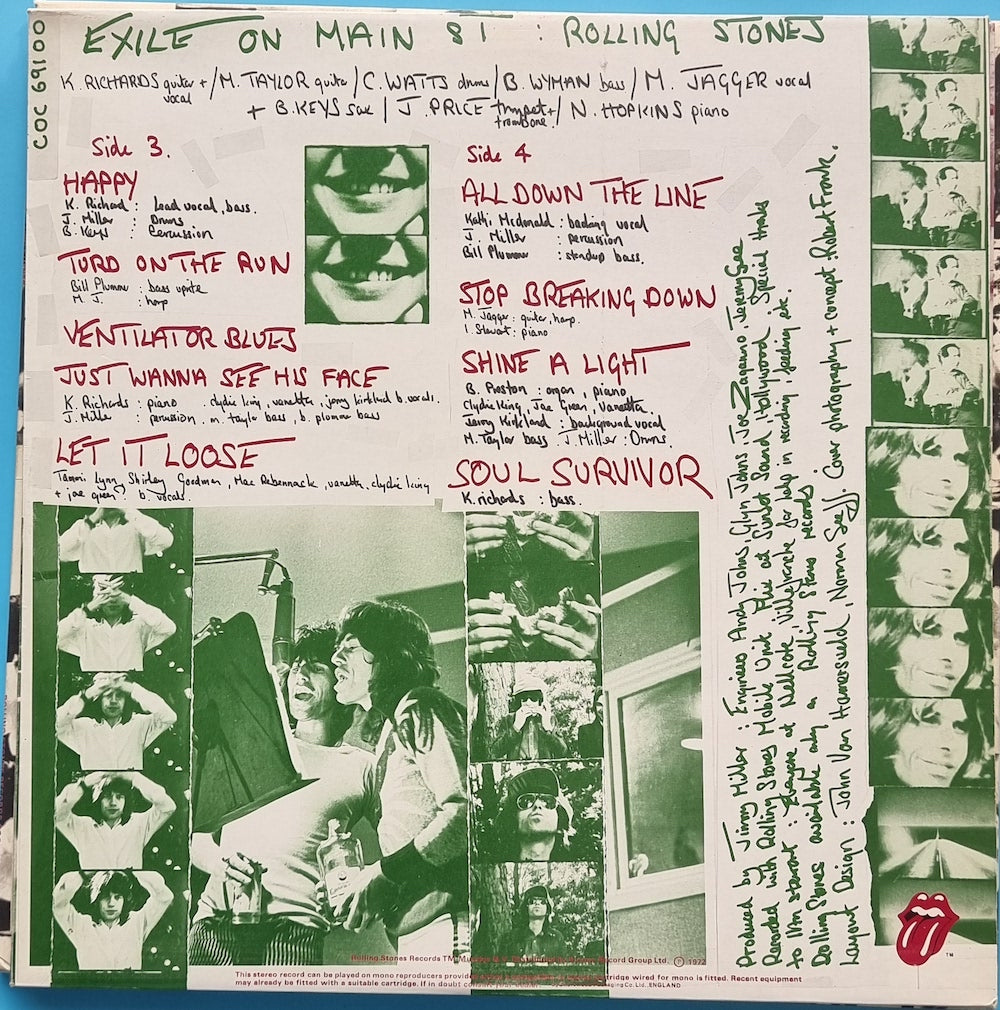 EXILE ON MAIN ST : ROLLING STONES
COC 69100
K. RICHARDS guitar + / M. TAYLOR guitar / C. WATTS drums / B. WYMAN bass / M. JAGGER vocal
vocal
+ B. KEYS sax / J. PRICE trumpet + / N. HOPKINS piano
trombone.
Side 3.
HAPPY
K. Richard : Lead vocal, bass.
J. Miller : Drums
B. Keys : Percussion
TURD ON THE RUN
Bill Plummer : bass uprite
M. J. : harp
VENTILATOR BLUES
JUST WANNA SEE HIS FACE
K. Richards : piano . clydie king, vanetta, jerry kirkland b. vocals.
J. Miller : percussion. m. taylor bass, b. plummer bass
LET IT LOOSE
Tammi Lynn, Shirley Goodman, Mac Rebennack, vanetta, clydie king
+ joe green : b. vocals.
Side 4
ALL DOWN THE LINE
Kathi Mcdonald : backing vocal
J. Miller : percussion
Bill Plummer : standup bass.
STOP BREAKING DOWN
M. Jagger : guitar, harp.
I. Stewart : piano.
SHINE A LIGHT
B. Preston : organ, piano
Clydie King, Joe Green, Vanetta,
Jerry Kirkland : background vocal
M. Taylor bass J. Miller : Drums.
SOUL SURVIVOR
K. richards : bass.
Produced by Jimmy Miller : Engineers Andy Johns Glyn Johns Joe Zagarino, Jeremy Gee
Recorded with Rolling Stones Mobile Unit Mix at Sunset Sound, Hollywood : Special thanks
to Ian stewart : at Nellcote Villefranche for help in recording, feeding etc.
Rolling Stones available only on Rolling Stones records :
Layout Design : John Van Hamersveld, Norman Seeff. Cover photography + concept : Robert Frank.
Rolling Stones Records TM Record Group Ltd. ℗ 1972
This stereo record can be played on mono reproducers provided cartridge wired for mono is fitted. Recent equipment
may already be fitted with a suitable cartridge. If in doubt Co. Ltd., ENGLAND
TM